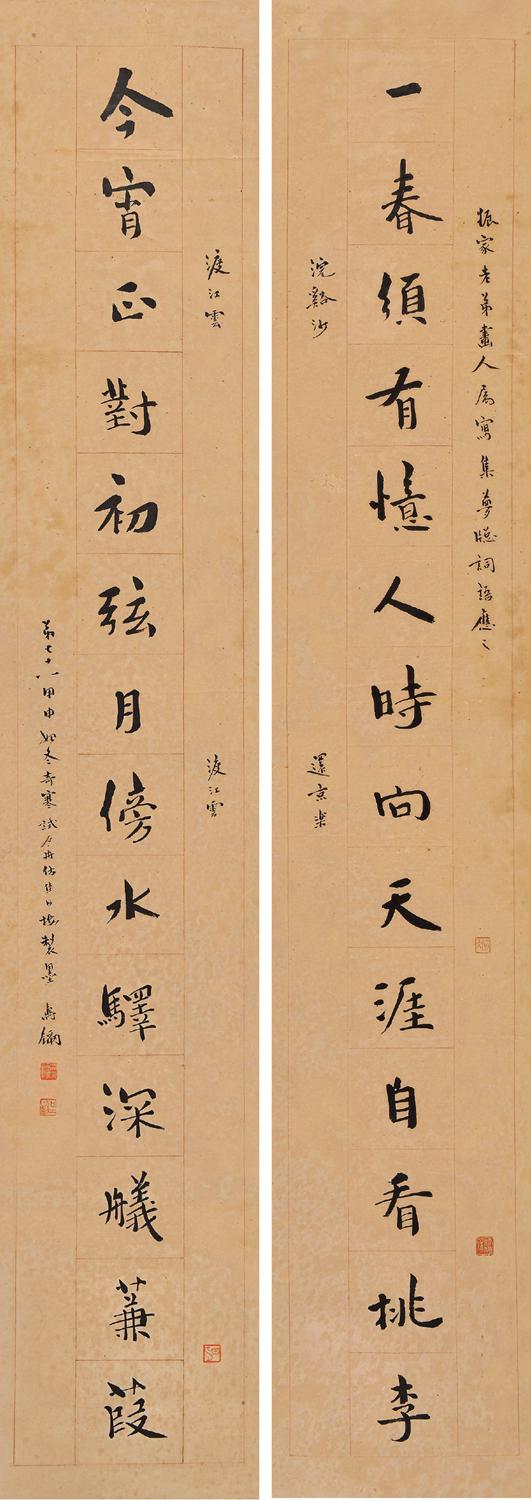 振家老弟畫人屬寫集夢牕詞語應之
一春須有憶人時向天涯自看桃李
浣谿沙
還京樂
渡江雲
渡江雲
今宵正對初弦月傍水驛深艤蒹葭
第七十八甲申冬奇寒試製墨壽鑈